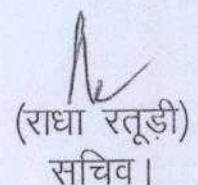 (राधा रतूड़ी)
सचिव।